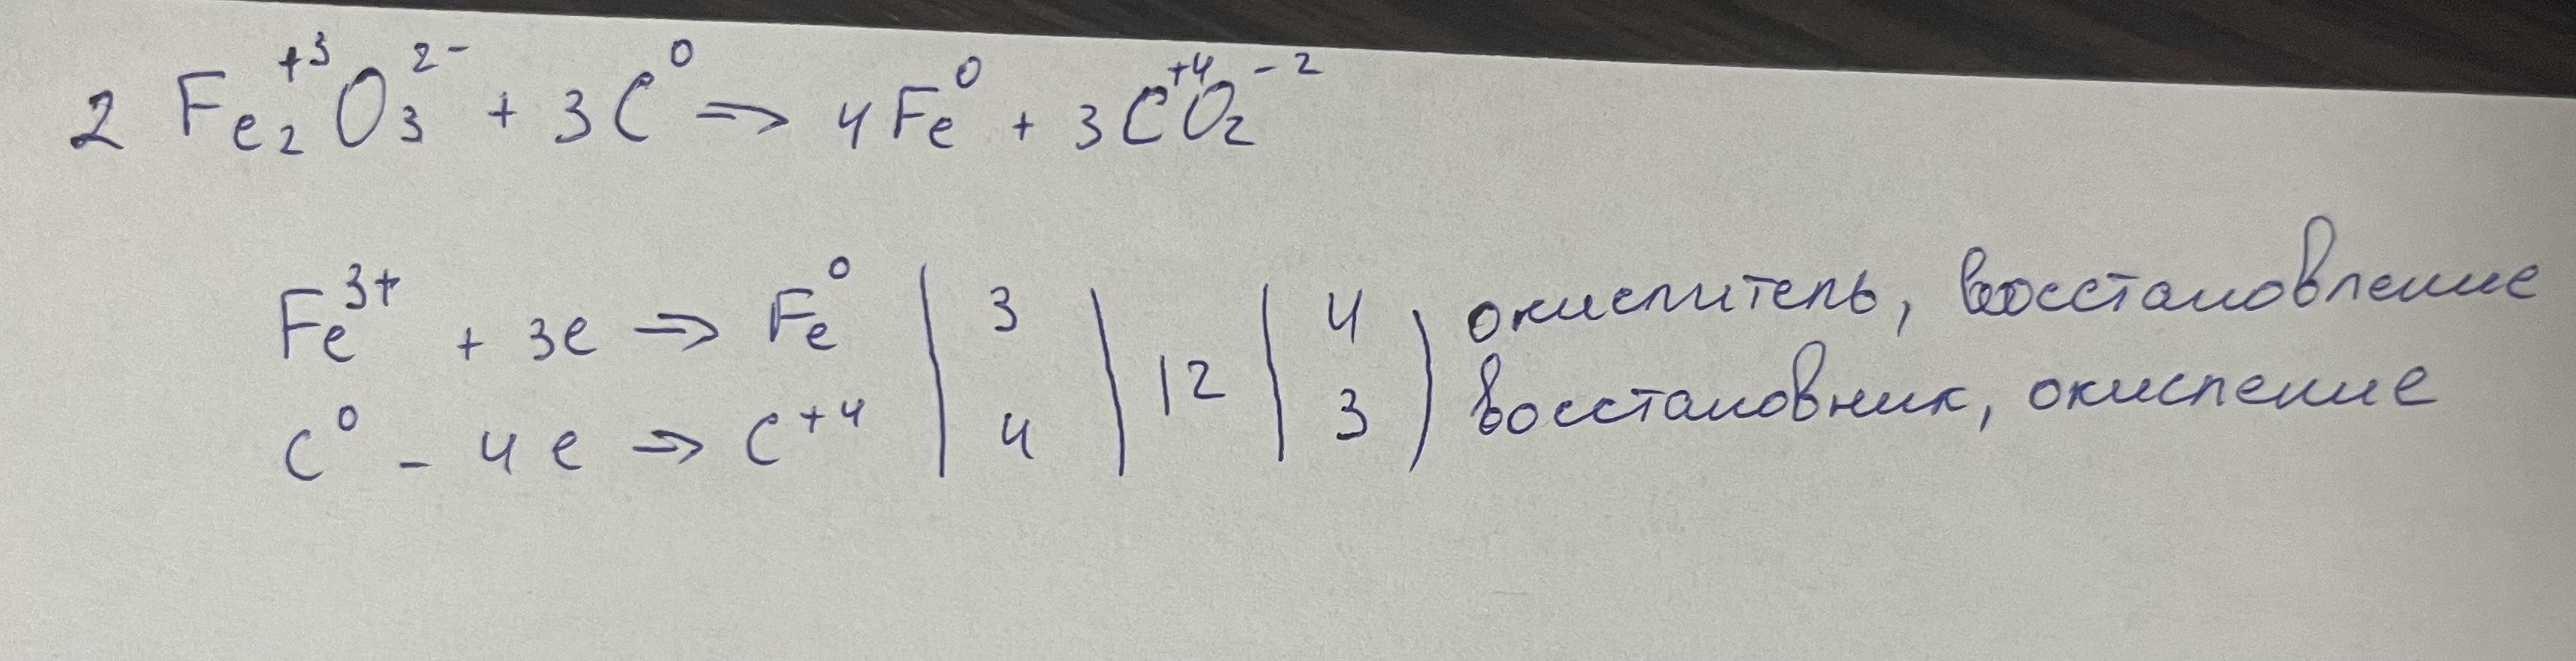 2 Fe₂⁺³O₃²⁻ + 3C⁰ ⇒ 4Fe⁰ + 3C⁺⁴O₂⁻²
Fe³⁺ + 3e ⇒ Fe⁰ | 3 | 12 | 4 | окислитель, восстановление
C⁰ - 4e ⇒ C⁺⁴ | 4 | | 3 | восстановник, окисление